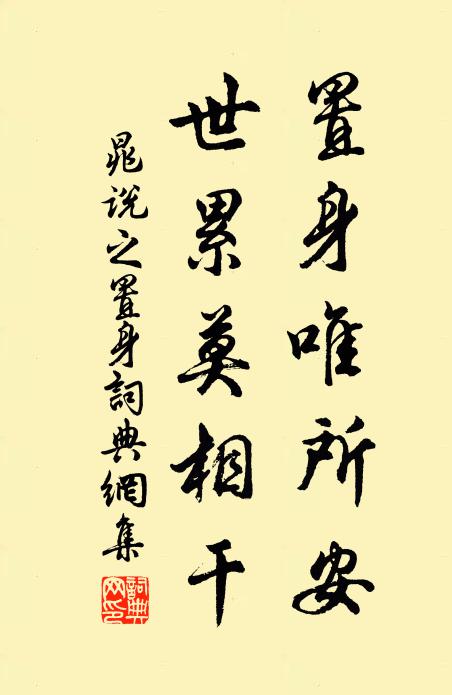 置身唯所安
世累莫相干
晁說之置身詞典網集
詞典網印